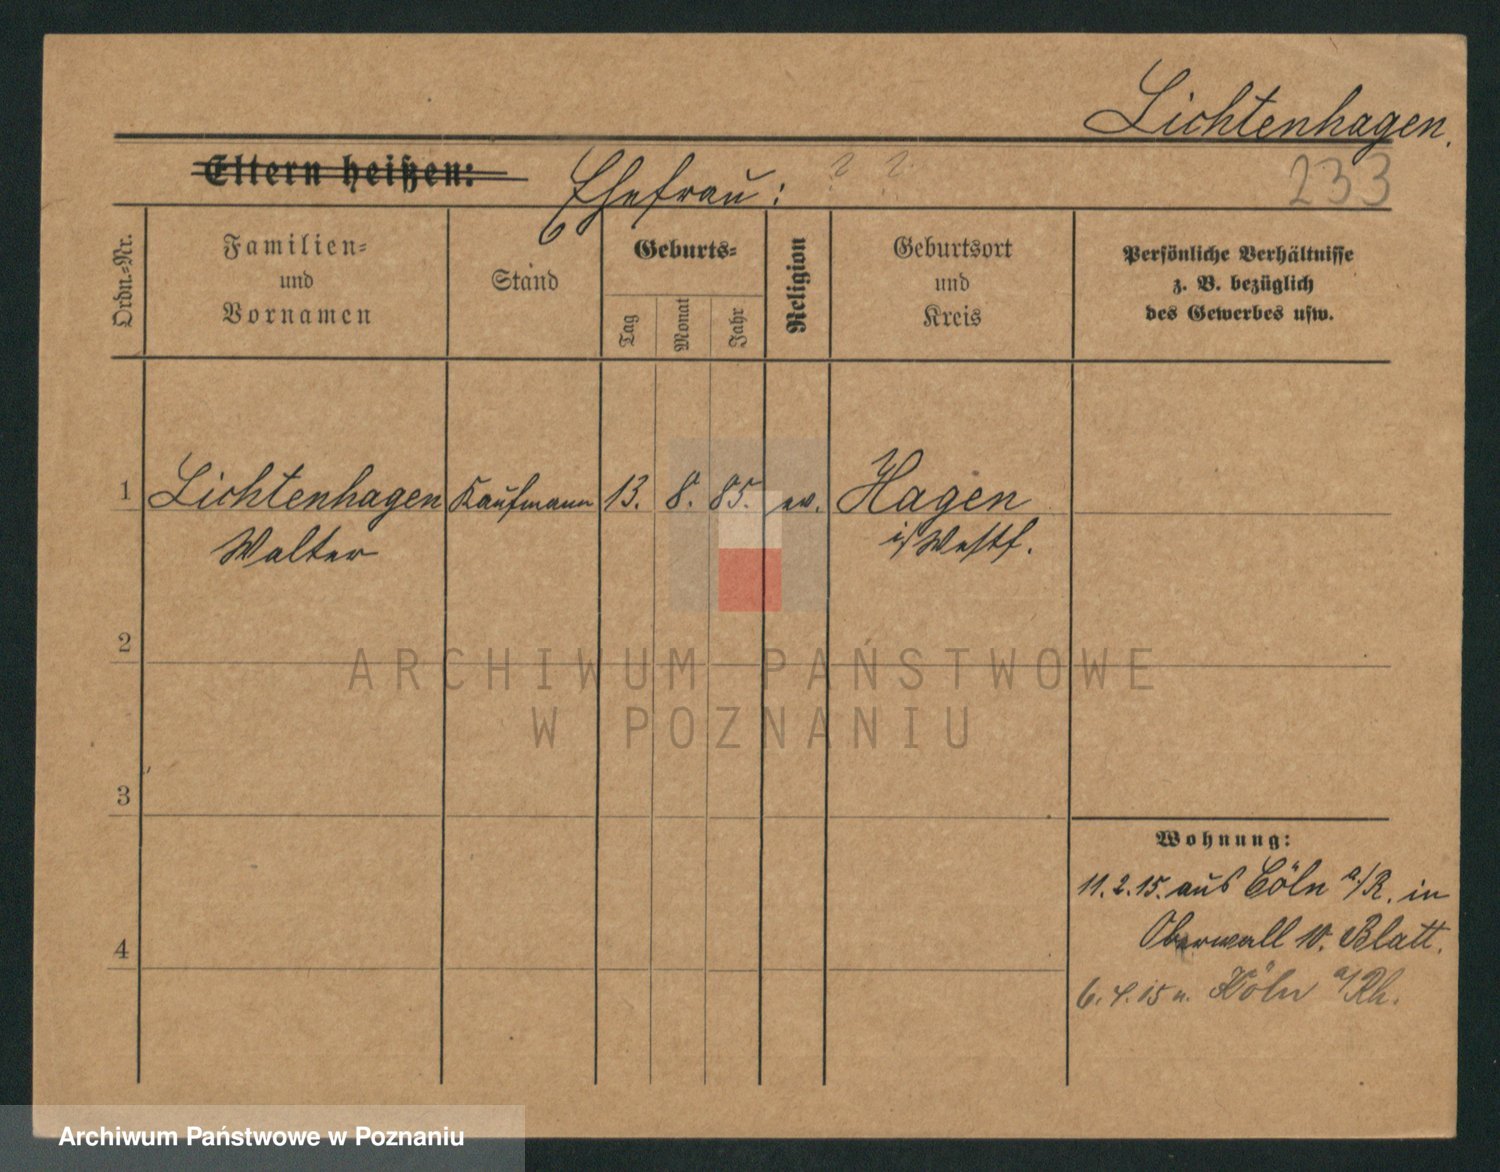 Lichtenhagen.
Eltern heißen:
Ehefrau: ? ?
233
Ordn.=Nr.
Familien=
und
Vornamen
Stand
Geburts=
Tag
Monat
Jahr
Religion
Geburtsort
und
Kreis
Persönliche Verhältnisse
z. B. bezüglich
des Gewerbes usw.
1 Lichtenhagen Kaufmann 13. 8. 85. ev. Hagen
Walter i/Westf.
2
ARCHIWUM PAŃSTWOWE
W POZNANIU
3
Wohnung:
11.2.15. aus Cöln a/R. in
Oberwall 10. Blatt.
4
6.4.15 n. Köln a/Rh.
Archiwum Państwowe w Poznaniu